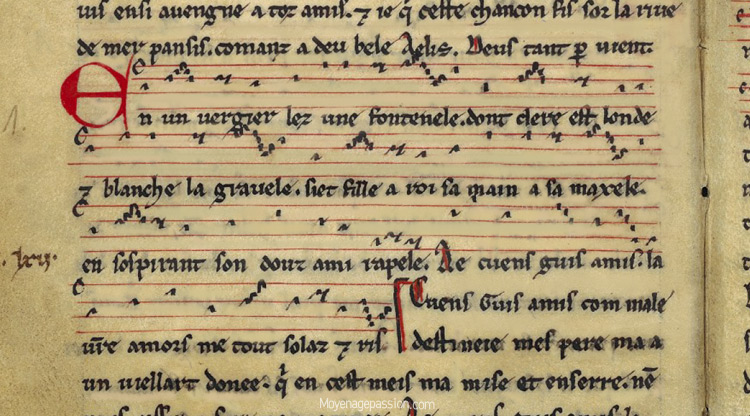 uis ensi auengne a toz amis. ⁊ ie q̄ ceste chancon fis sor la riue
de mer pansis. comanz a deu bele Aelis. Deus tant ꝑ uient.
En un uergier lez une fontenele. dont clere est londe
⁊ blanche la grauele. siet fille a roi sa main a sa maxele.
en sospirant son douz ami rapele. Ae cuens guis amis. la
.lxij.
ur̄e amors me tout solaz ⁊ ris. Cuens Guis amis com male
destineie mes pere ma a
un uiellart donee. q̄ en cest meis ma mise et enserre. nē
Moyenagepassion.com